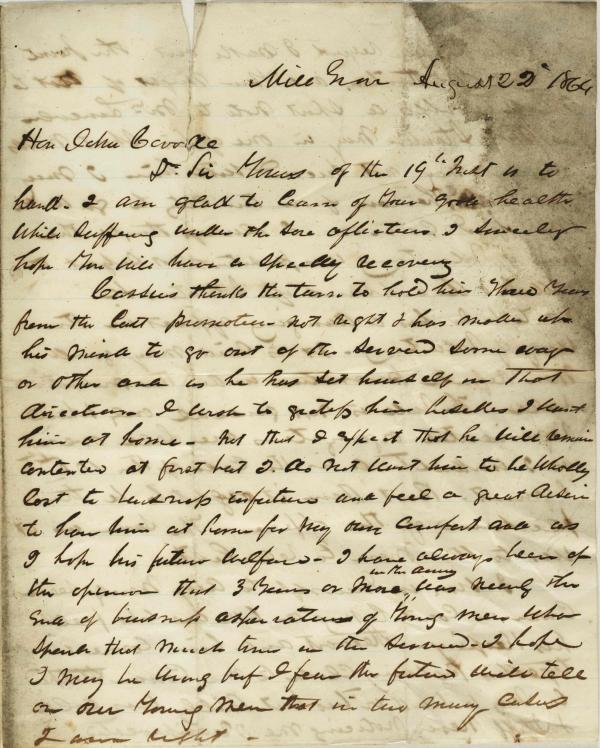 Mill Grove August 22d 1864
Hon John Covode
Dr Sir Yours of the 19th Inst is to
hand. I am glad to learn of Your good health
While suffering under the sore afliction I sincerely
hope You will have a speedy recovery
Cassius thinks the turn to hold him three Years
from the last promotion not right & has made up
his mind to go out of the Service some way
or other and as he has set himself in that
direction I wish to gratify him besides I want
him at home. Not that I expect that he will remain
contented at first but I do not want him to be wholly
lost to buisness in future and feel a great desire
to have him at home for my own comfort and as
I hope his future welfare. I have always been of
the opinion that 3 Years or More in the Army was nearly the
End of buisness asperations of Young men who
spend that much time in the Service. I hope
I may be wrong but I fear the future will tell
on our Young Men that in two many cases
I was right.